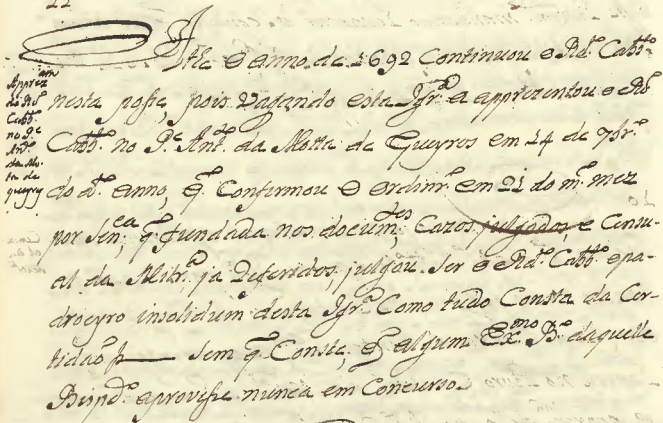 Ate o anno de 1692 Continuou o Rdº Cabbº
nesta posse, pois Vagando esta Igrª a apprezentou o Rdº
Cabbº no Pe Antº da Motta de Queyros em 14 de 7brº
do dº anno, q Confirmou o Ordinrº em 21 do mº mez
por Senca, q fundada nos documtes, Cazos julgados e Censu-
al da Mitrª ja Referidos, julgou Ser o Rdº Cabbº o pa-
droeyro insolidum desta Igrª Como tudo Consta da Cer-
tidaõ Sem q Conste, q algum Exmo Bº daquelle
Bispdº aprovesse nunca em Concurso.
Apprezam
do Rdº
Cabbº
no Pe
Antº
da Mo-
ta de
queyrs